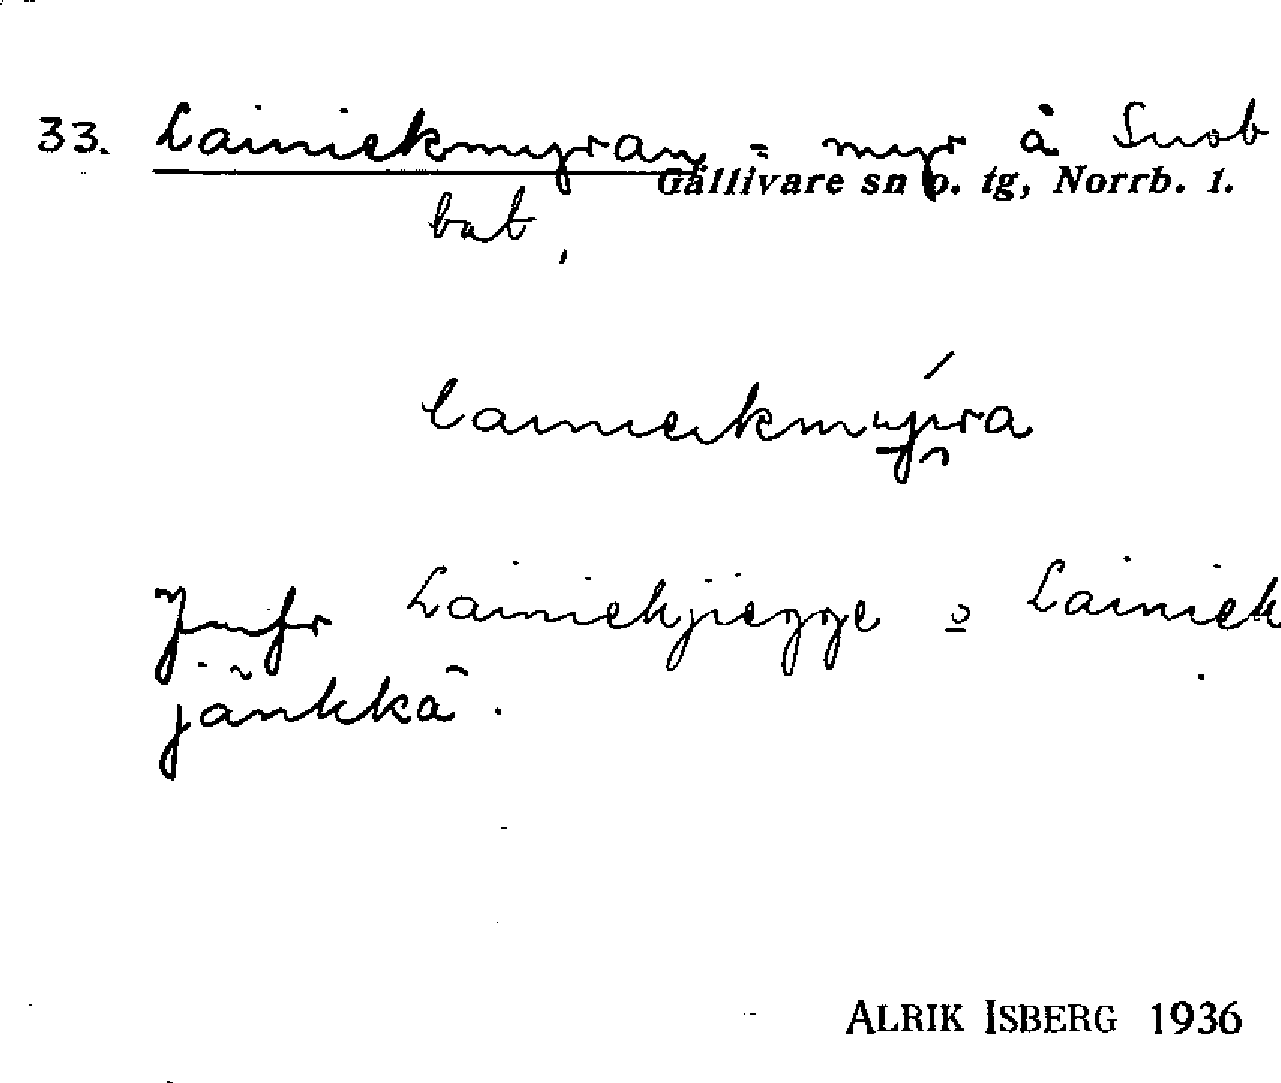 33. Lainiekmyran = myr å Snob
Gällivare sn o. tg, Norrb. l.
bat,
lainiekmyra
Jmfr Lainiekjiegge o Lainiek
jänkkä.
ALRIK ISBERG 1936